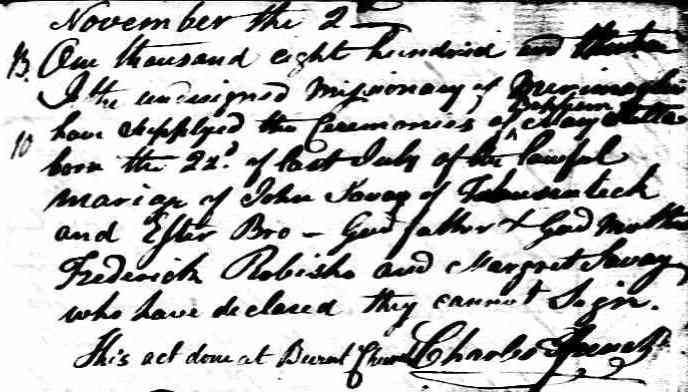 November the 2
B. One thousand eight hundred and thirteen
I the undersigned Missionary of
10 have supplyed the Ceremonies of Baptism to Mary
born the 22d. of last July of the lawful
mariage of John Savoy of
and Ester Bro - God father & God Mother
Frederick Robisho and Margret Savoy
who have declared they cannot Sign.
This act done at Burnt Church Charles French